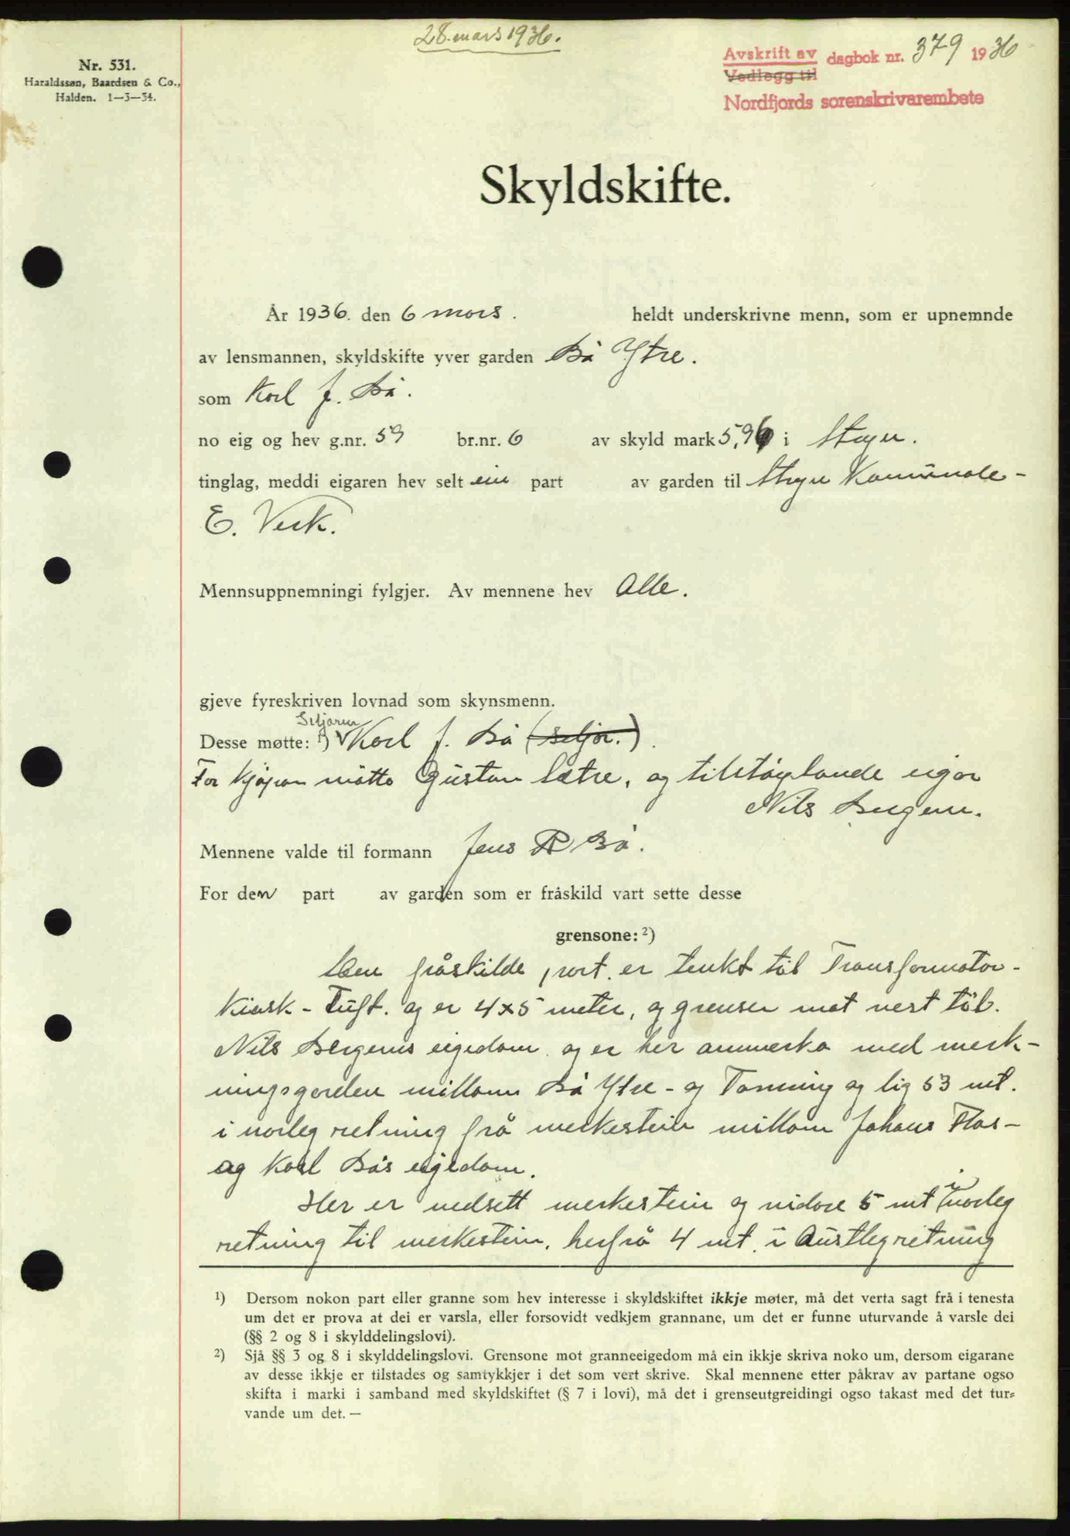 28. mars 1936.
Nr. 531.
Haraldssøn, Baardsen & Co.,
Halden. 1—3—34.
Avskrift av dagbok nr. 379 1936
Vedlegg til
Nordfjords sorenskrivarembete
Skyldskifte.
År 1936. den 6 mars. heldt underskrivne menn, som er upnemnde
av lensmannen, skyldskifte yver garden Bø Ytre.
som Karl J. Bø.
no eig og hev g.nr. 59 br.nr. 6 av skyld mark 5,96 i Stryn.
tinglag, meddi eigaren hev selt ein part av garden til Stryn Komunale-
E. Verk.
Mennsuppnemningi fylgjer. Av mennene hev Alle.
gjeve fyreskriven lovnad som skynsmenn.
Seljaren
Desse møtte: ¹) Karl J. Bø (seljar.).
For kjøparen møtte Gustav Sætre, og tilstøytande eigar
Nils Bergem.
Mennene valde til formann Jens R Bø.
For den part av garden som er fråskild vart sette desse
grensone: ²)
Den fråskilde part er tenkt til Transformator-
kiosk - Tuft. og er 4x5 meter, og grenser mot vest til
Nils Bergems eigedom og er her anmerka med merk-
ningsgarden millom Bø Ytre - og Tonning og lig 53 mt.
i norleg retning frå merkestein millom Johans Flas-
og Karl Bøs eigedom.
Her er nedsett merkestein og vidare 5 mt i norleg
retning til merkestein. herfrå 4 mt. i Austleg retning
¹) Dersom nokon part eller granne som hev interesse i skyldskiftet ikkje møter, må det verta sagt frå i tenesta
um det er prova at dei er varsla, eller forsovidt vedkjem grannane, um det er funne uturvande å varsle dei
(§§ 2 og 8 i skylddelingslovi).
²) Sjå §§ 3 og 8 i skylddelingslovi. Grensone mot granneeigedom må ein ikkje skriva noko um, dersom eigarane
av desse ikkje er tilstades og samtykkjer i det som vert skrive. Skal mennene etter påkrav av partane ogso
skifta i marki i samband med skyldskiftet (§ 7 i lovi), må det i grenseutgreidingi ogso takast med det tur-
vande um det. —